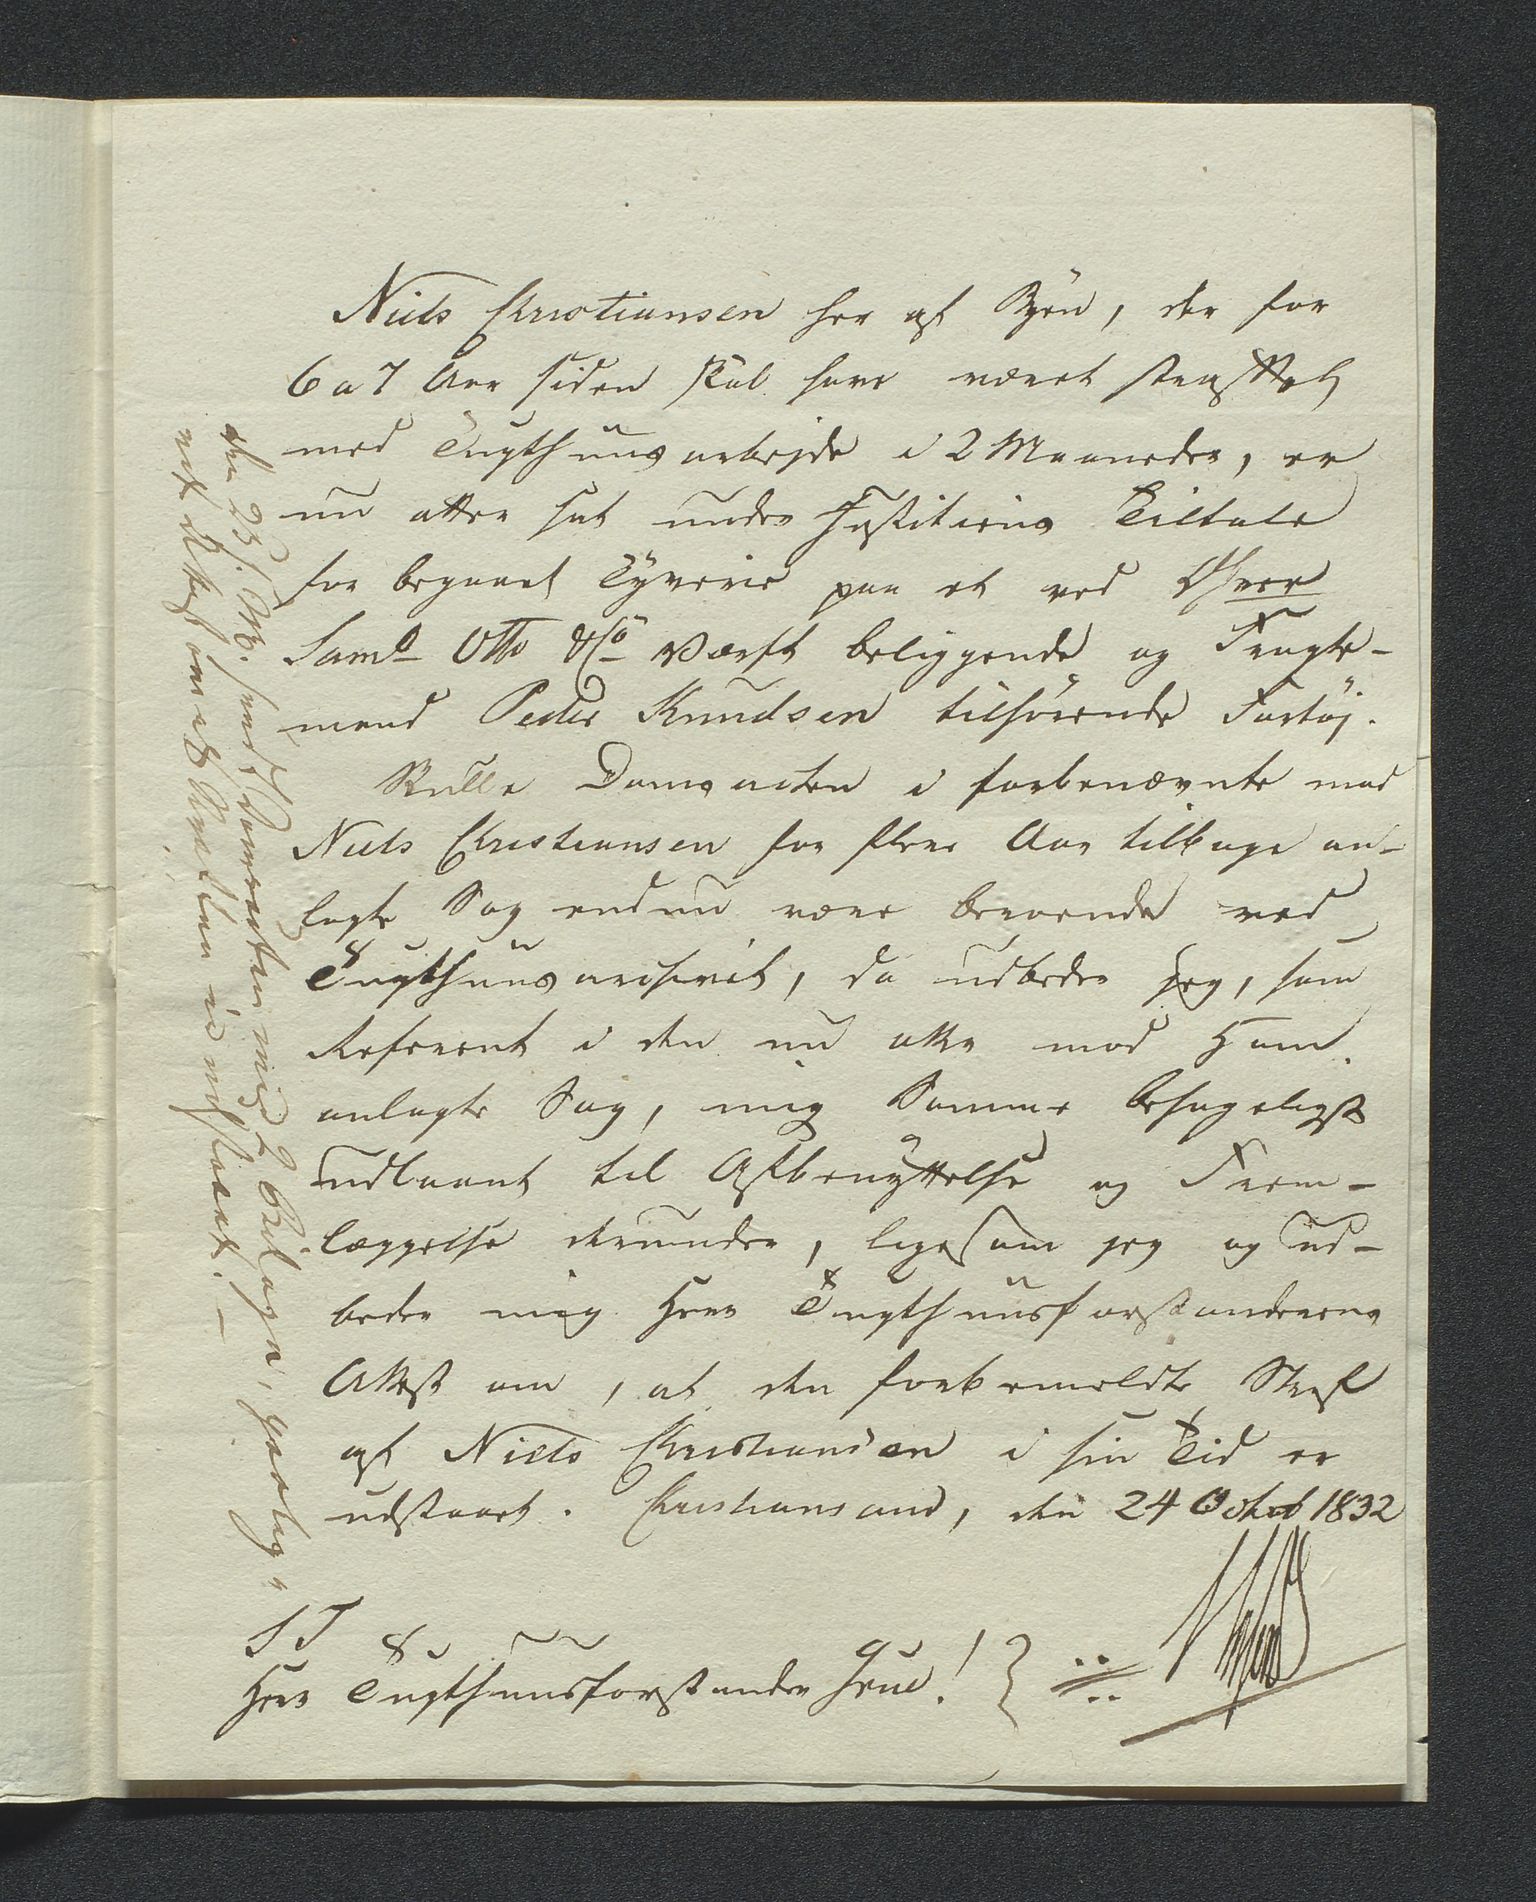 Niels Christiansen her af Byen, der for
6 a 7 Aar siden skal have været straffet
med Tugthuusarbejde i 2 Maaneder, er
nu atter sat under Justitiens Tiltale
for begaaet Tyverie paa et ved
Saml Otto & Co Værft beliggende og Fragte-
mand Peder Knudsen tilhørende Fartøj.
Skulle Domsacten i forbenævnte mod
Niels Christiansen for flere Aar tilbage an-
lagte Sag endnu være beroende ved
Tugthuusarchivet, da udbeder jeg, som
Referent i den nu atter mod Ham
anlagte Sag, mig Samme behageligst
udlaant til Afbenyttelse og Frem-
læggelse derunder, ligesom jeg og ud-
beder mig Herr Tugthuusforstanderens
Attest om, at den forbemeldte Straf
af Niels Christiansen i sin Tid er
udstaaet. Christiansand, den 24 Octob 1832
S T
Herr Tugthuusforstander Grue!
den 25 . sendt Domsacten med 2 Bilage,
med Attest om at Straffen er udstaaet. —